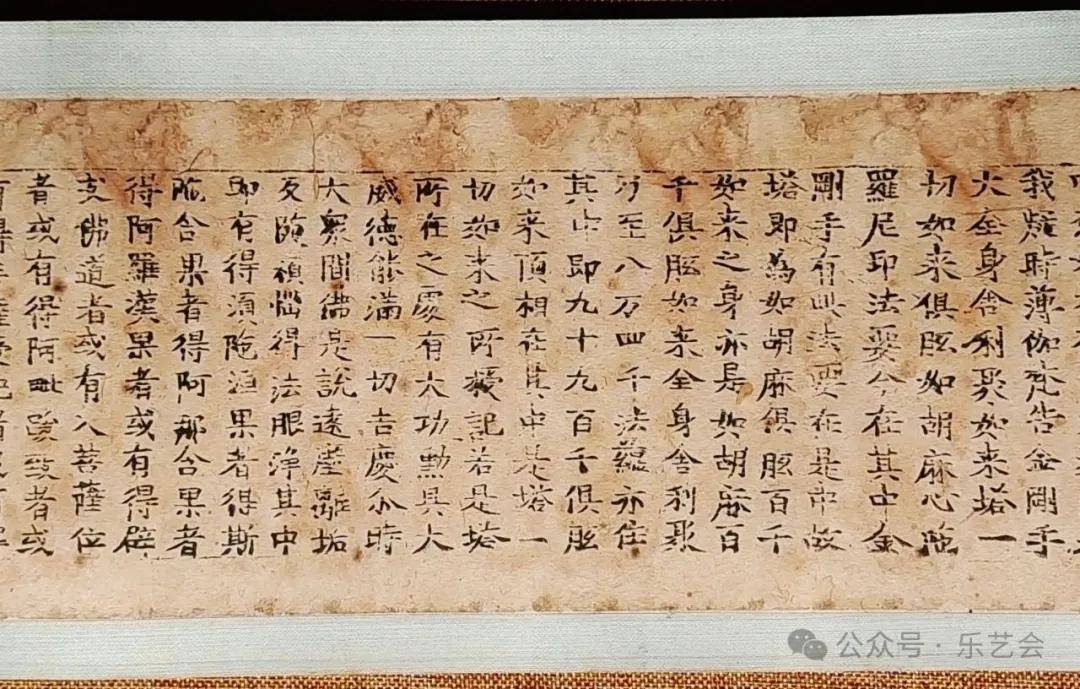 我疑時薄伽梵告金剛手
大全身舍利聚如来塔一
切如来俱胝如胡麻心陁
羅尼印法要今在其中金
剛手有此法要在是中故
塔即為如胡麻俱胝百千
如来之身亦是如胡麻百
千俱胝如来全身舍利聚
乃至八万四千法蘊亦住
其中即九十九百千俱胝
如来頂相在其中是塔一
切如来之所授記若是塔
所在之處有大功勳具大
威德能滿一切吉慶尒時
大衆聞佛是說遠塵離垢
及隨煩惱得法眼浄其中
即有得須陁洹果者得斯
陁含果者得阿那含果者
得阿羅漢果者或有得辟
支佛道者或有入菩薩位
者或有得阿毗跋致者或
公众号·乐艺会